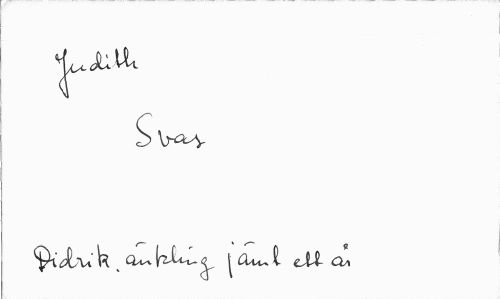 Judith
Svas
Didrik, änkling jämt ett år